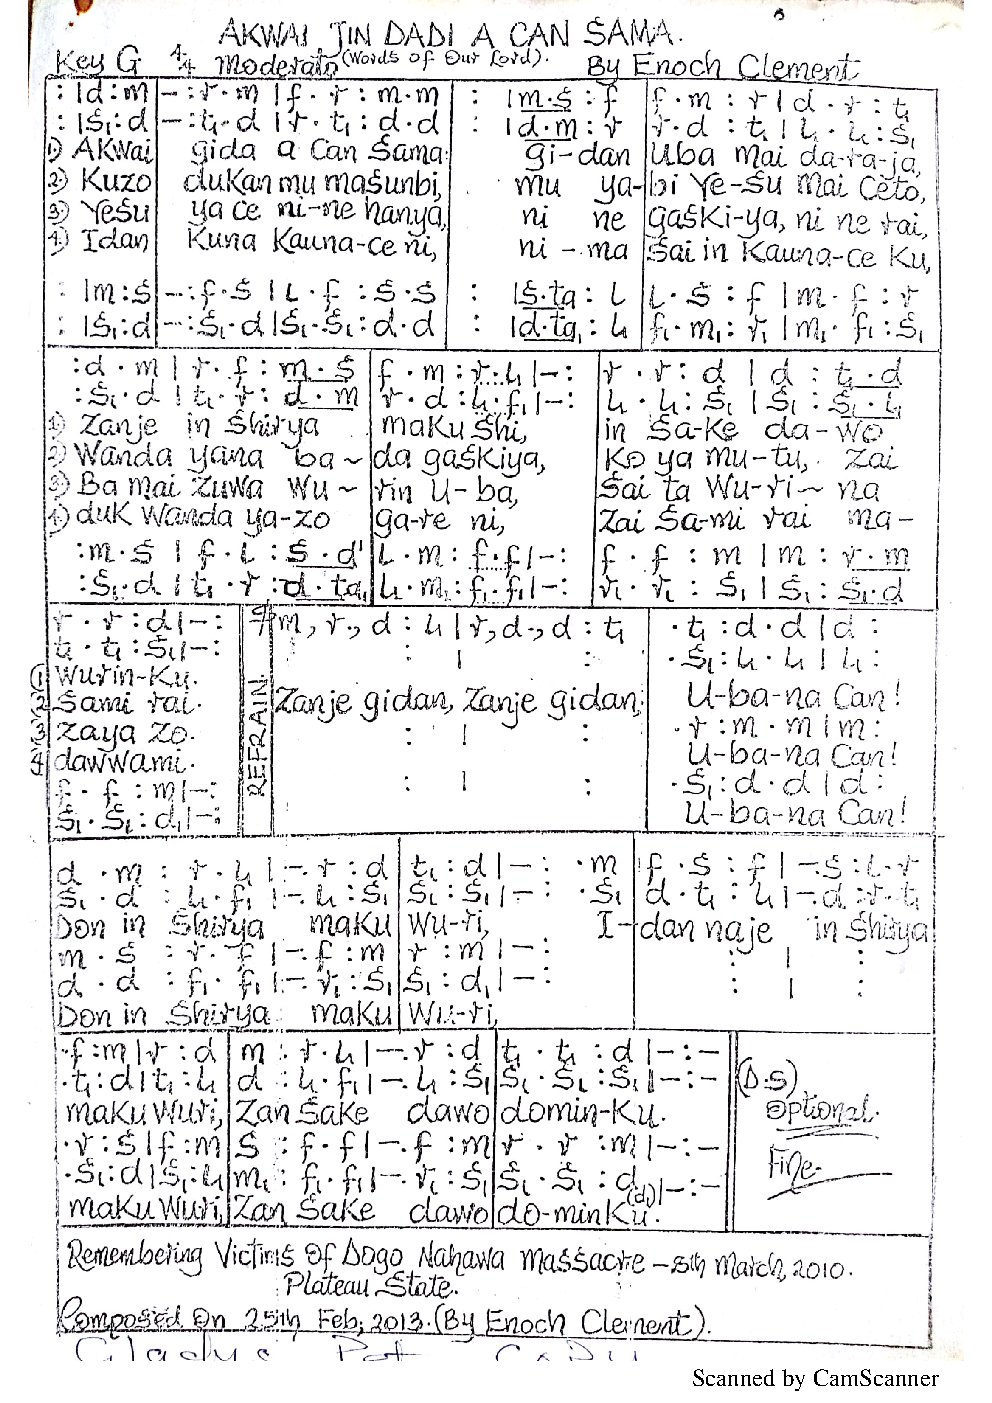 AKWAI JIN DADI A CAN SAMA.
Key G 4/4 Moderato (Words of Our Lord). By Enoch Clement
: |d:m –:r·m |f·r:m·m : |m·s:f f·m:r|d·r:t₁
: |s₁:d –:t₁·d |r·t₁:d·d : |d·m:r r·d:t₁|l₁·l₁:s₁
1) Akwai gida a Can Sama: gi-dan Uba mai da-ra-ja,
2) Kuzo duKan mu masunbi, mu ya-bi Ye-su Mai Ceto,
3) Yesu ya ce ni-ne hanya, ni ne gaski-ya, ni ne rai,
4) Idan Kuna Kauna-ce ni, ni-ma Sai in Kauna-ce Ku,
: |m:s –:f·s |l·f:s·s : |s·ta:l l·s:f|m·f:r
: |s₁:d –:s₁·d |s₁·s₁:d·d : |d·ta₁:l₁ f₁·m₁:r₁|m₁·f₁:s₁
:d·m|r·f:m·s f·m:r·l₁|–: r·r:d|d:t₁·d
:s₁·d|t₁·r:d·m r·d:l₁·f₁|–: l₁·l₁:s₁|s₁:s₁·l₁
1) Zanje in Shirya maku Shi, in Sa-Ke da-wo
2) Wanda yana ba~da gaskiya, Ko ya mu-tu, Zai
3) Ba mai zuwa wu~rin U-ba, Sai ta Wu-ri~na
4) duk Wanda ya-zo ga-re ni, Zai Sa-mi rai ma-
:m·s|f·l:s·d' l·m:f·f|–: f·f:m|m:r·m
:s₁·d|t₁·r:d·ta₁ l₁·m₁:f₁·f₁|–: r₁·r₁:s₁|s₁:s₁·d
r·r:d|–: m,r.,d:l₁|r,d.,d:t₁ ·t₁:d·d|d:
t₁·t₁:s₁|–: : | : ·s₁:l₁·l₁|l₁:
1 Wurin-Ku.
2 Sami rai.
3 Zaya Zo.
4 dawwami.
f·f:m|–:
s₁·s₁:d₁|–:
REFRAIN
Zanje gidan, Zanje gidan,
U-ba-na Can!
·r:m·m|m:
U-ba-na Can!
·s₁:d·d|d:
U-ba-na Can!
d·m:r·l₁|–·r:d t₁:d|–: ·m f·s:f|–·s:l·r
s₁·d:l₁·f₁|–·l₁:s₁ s₁:s₁|–: ·s₁ d·t₁:l₁|–·d:r·t₁
Don in Shirya maku Wu-ri, I-dan naje in Shirya
m·s:r·f|–·f:m r:m|–: : | :
d·d:f₁·f₁|–·r₁:s₁ s₁:d₁|–: : | :
Don in Shirya maku Wu-ri,
·f:m|r:d m:r·l₁|–·r:d t₁·t₁:d|–:–
·t₁:d|t₁:l₁ d:l₁·f₁|–·l₁:s₁ s₁·s₁:s₁|–:–
maKu Wuri, Zan Sake dawo domin-Ku.
·r:s|f:m s:f·f|–·f:m r·r:m|–:–
·s₁:d|s₁:l₁ m₁:f₁·f₁|–·r₁:s₁ s₁·s₁:d₁(d₁)|–:–
maKu Wuri, Zan Sake dawo do-minKu.
(D.S)
Optional.
Fine
Remembering Victims Of Dogo Nahawa Massacre – 8th March, 2010.
Plateau State.
Composed On 25th Feb, 2013. (By Enoch Clement).
Scanned by CamScanner